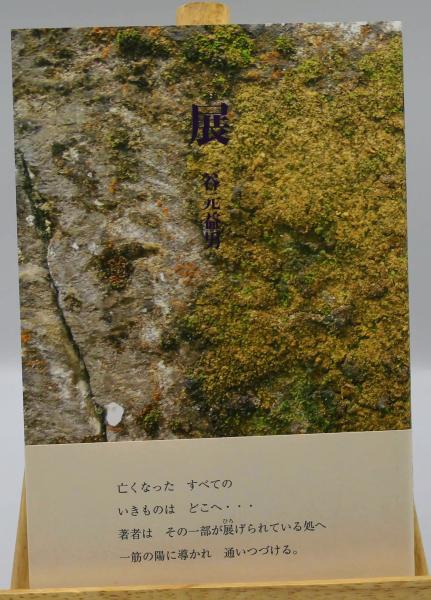 展
谷元益男
亡くなった　すべての
いきものは　どこへ・・・
著者は　その一部が展げられている処へ
ひろ
一筋の陽に導かれ　通いつづける。